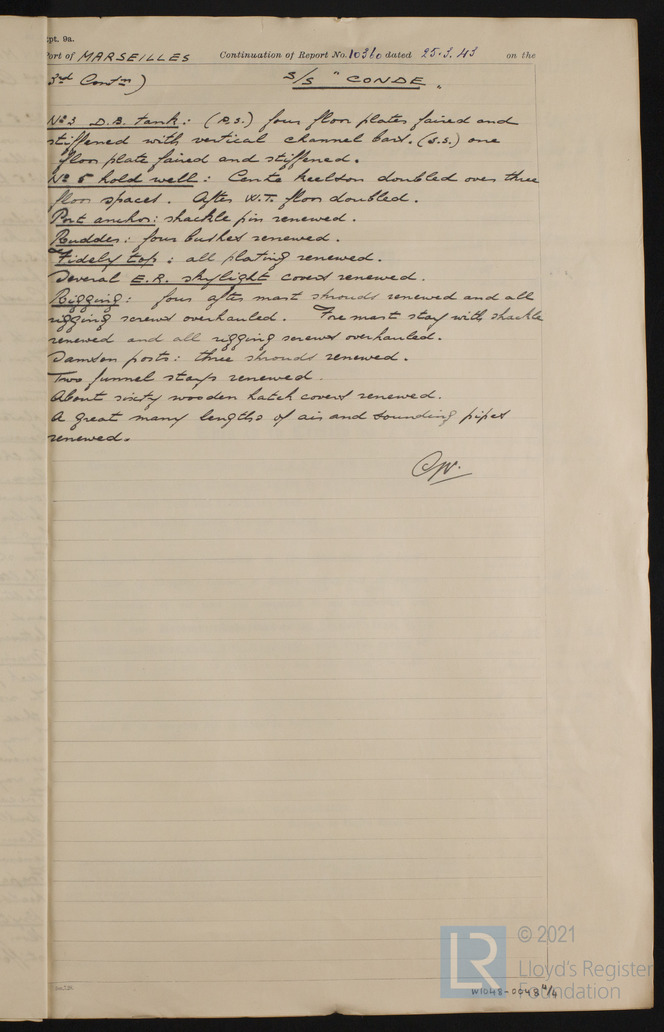 pt. 9a.
Port of MARSEILLES Continuation of Report No. 10360 dated 25.3.43 on the
3rd Contn) S/S "CONDE"
No 3 D.B. tank: (P.S.) four floor plates faired and
stiffened with vertical channel bars. (S.S.) one
floor plate faired and stiffened.
No 5 hold well: Centre keelson doubled over three
floor spaces. After W.T. floor doubled.
Port anchor: shackle pin renewed.
Rudder: four bushes renewed.
Fidely top: all plating renewed.
Several E.R. skylight covers renewed.
Rigging: four after mast shrouds renewed and all
rigging screws overhauled. Fore mast stay with shackle
renewed and all rigging screws overhauled.
Samson posts: three shrouds renewed.
Two funnel stays renewed.
About sixty wooden hatch covers renewed.
A great many lengths of air and sounding pipes
renewed.
LR
© 2021
Lloyd's Register
Foundation
W1048-0048 4/4